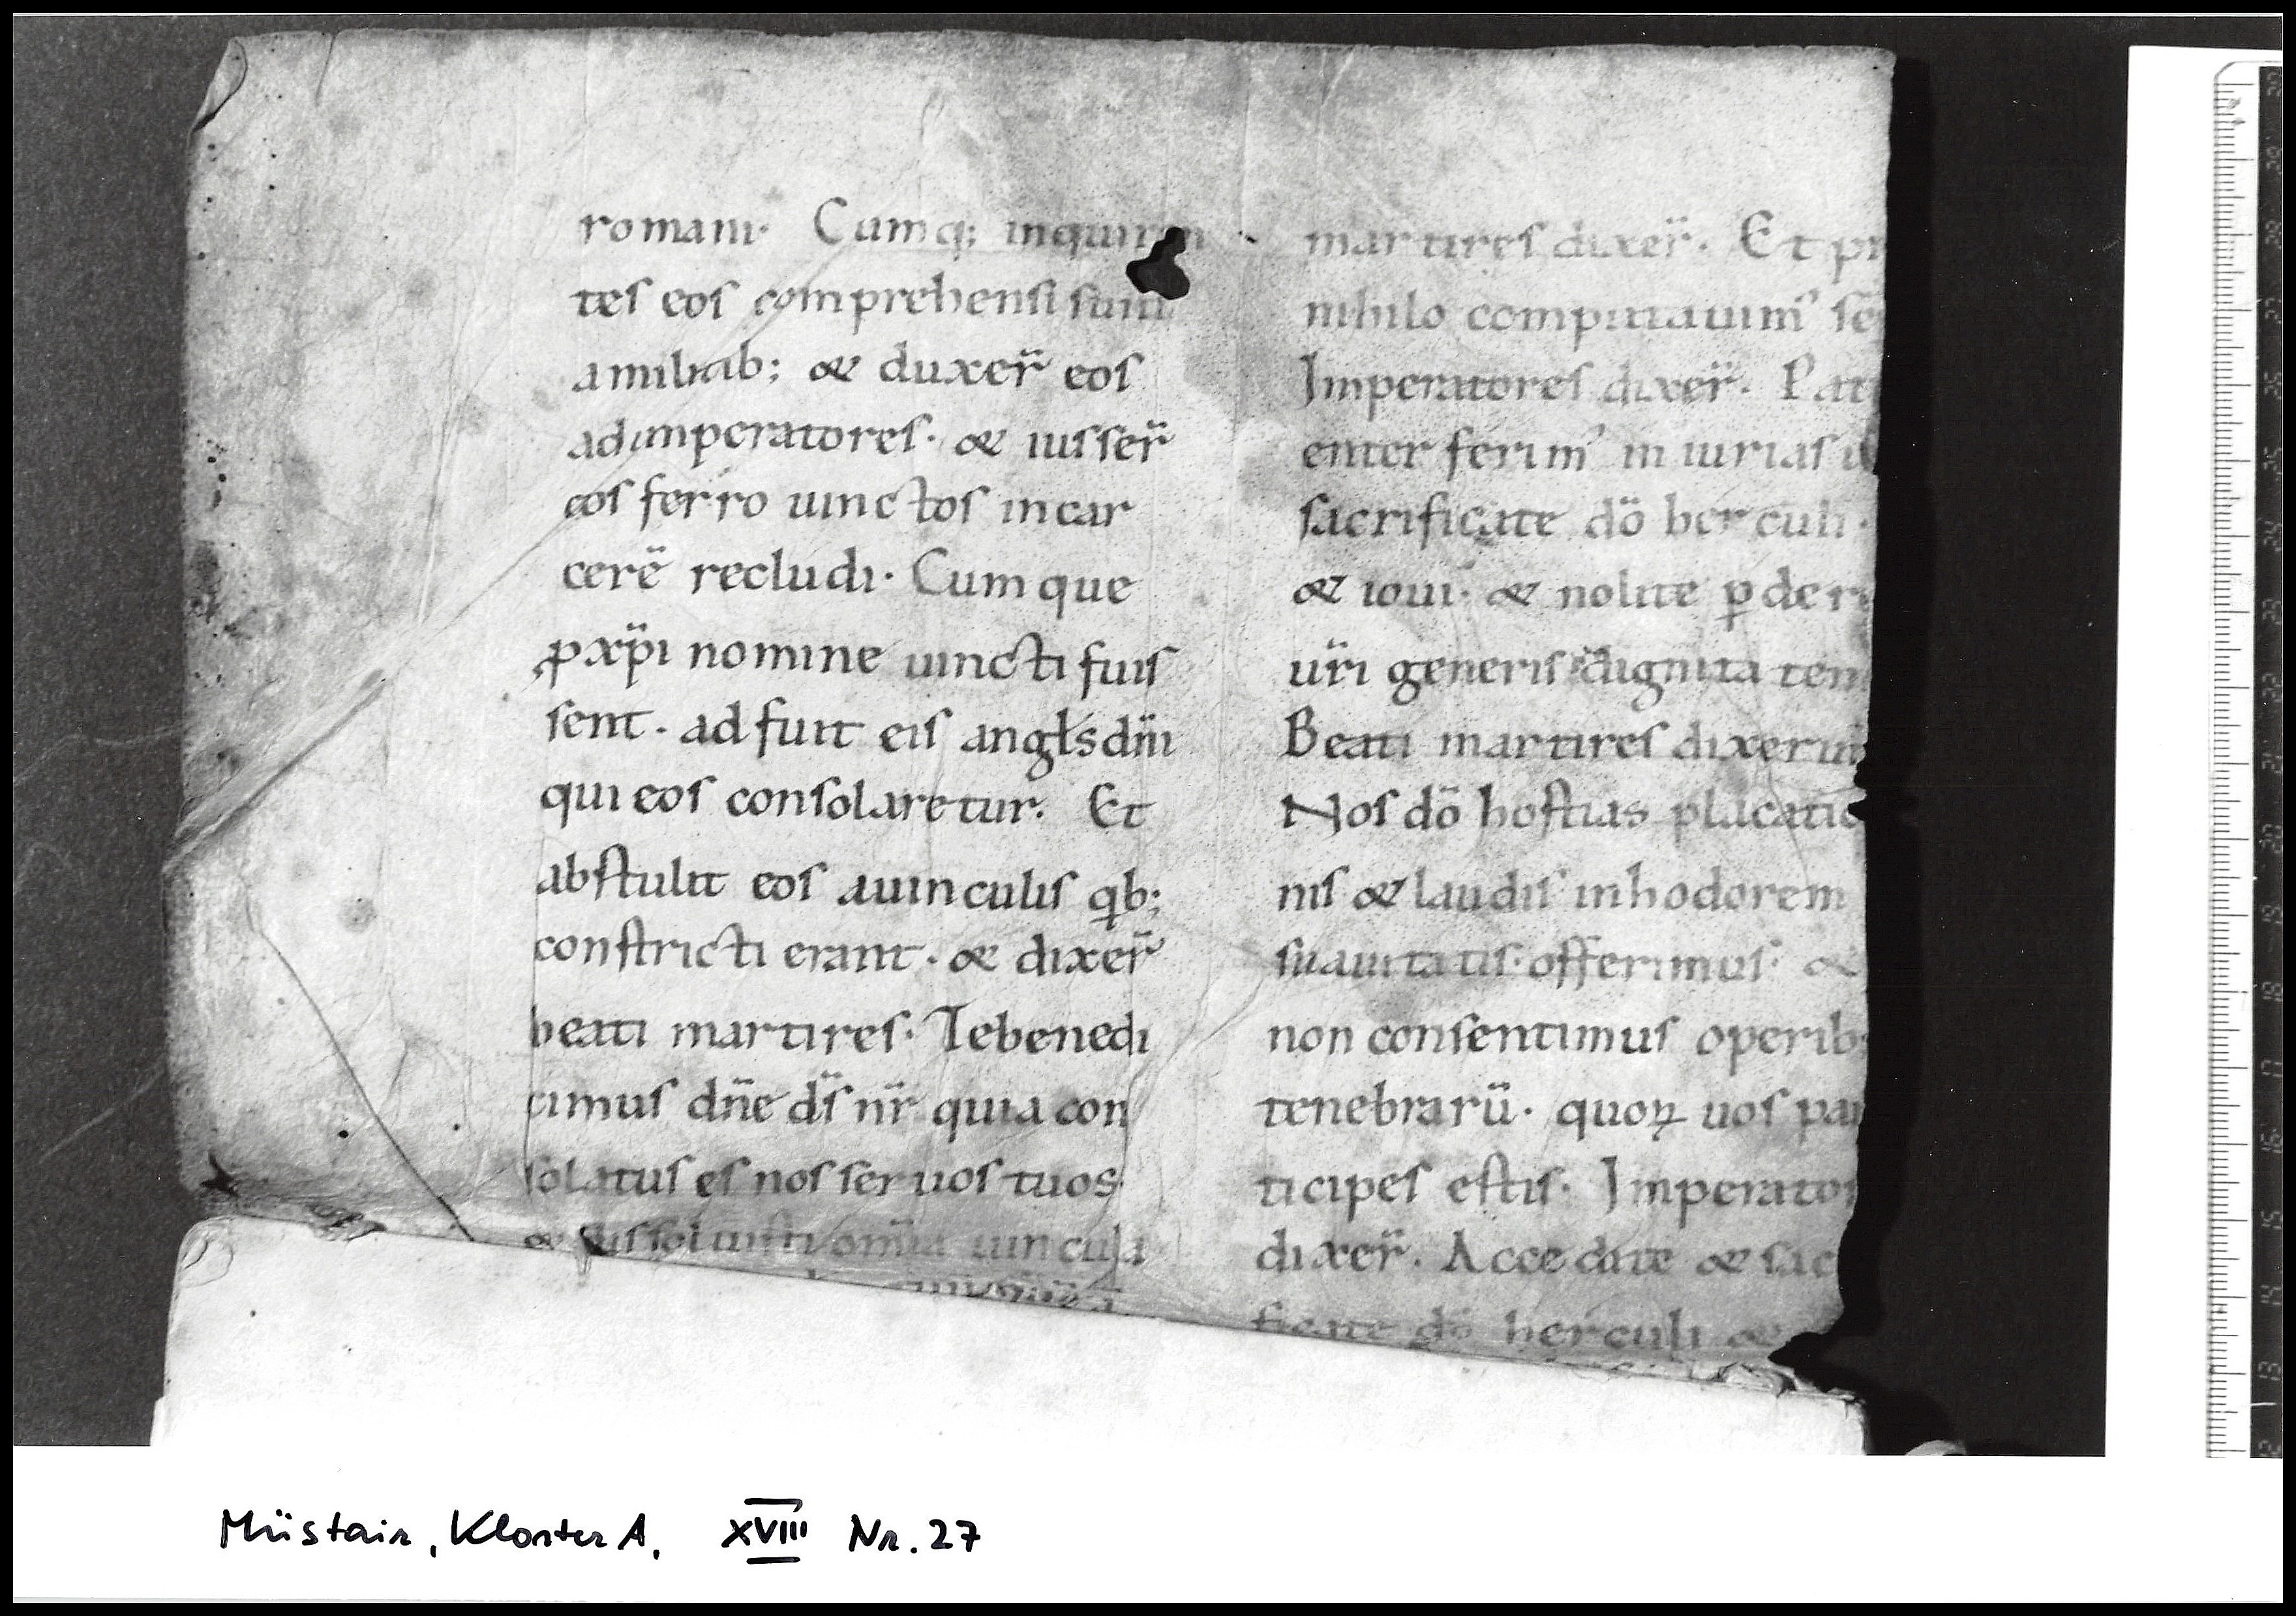 romani· Cumq; inquiren
tes eos comprehensi sunt
amilitib; & duxer̈ eos
adimperatores· & iusser̈
eos ferro uinctos incar
cerë recludi· Cumque
ꝓ xp̈i nomine uincti fuis
sent· adfuit eis angłs dn̈i
qui eos consolaretur· Et
abstulit eos auinculis qͥb;
constricti erant· & dixer̈
beati martires· Tebenedi
cimus dn̈e ds̈ nr̈ quia con
solatus es nos seruos tuos
& dissoluisti om̈ia uincula
martires dixer̈· Et pr
nihilo computauim' se
Imperatores dixer̈· Pati
enter ferim' iniurias
sacrificate dö herculi·
& ioui· & nolite ꝑdere
ur̈i generis dignitatem
Beati martires dixerun
Nos dö hostias placatio
nis & laudis inhodorem
suauitatis· offerimus· &
non consentimus operib;
tenebrarü· quoꝝ uos par
ticipes estis· Imperator
dixer̈· Accedite & sac
ficate dö herculi &
Müstair, Kloster A, XVIII Nr. 27